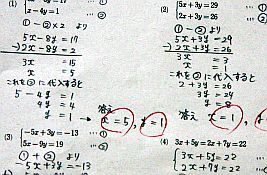 (1) ... ①
x-4y=1 ... ②
①-②×2 より
5x-8y=17
-) 2x-8y=2
3x =15
x =5
これを②に代入すると
5-4y=1
4y=4
y=1
答え x=5, y=1
(2) 5x+3y=29 ... ①
2x+3y=26 ... ②
①-②より
5x+3y=29
-) 2x+3y=26
3x =3
x =1
これを②に代入すると
2+3y=26
3y=24
y=8
答え x=1,
(3) -5x+3y=-13 ... ①
5x-9y=19 ... ②
①+②より
-5x+3y=-13
(4) 3x+5y=2x+7y=22
3x+5y=22
2x+7y=22